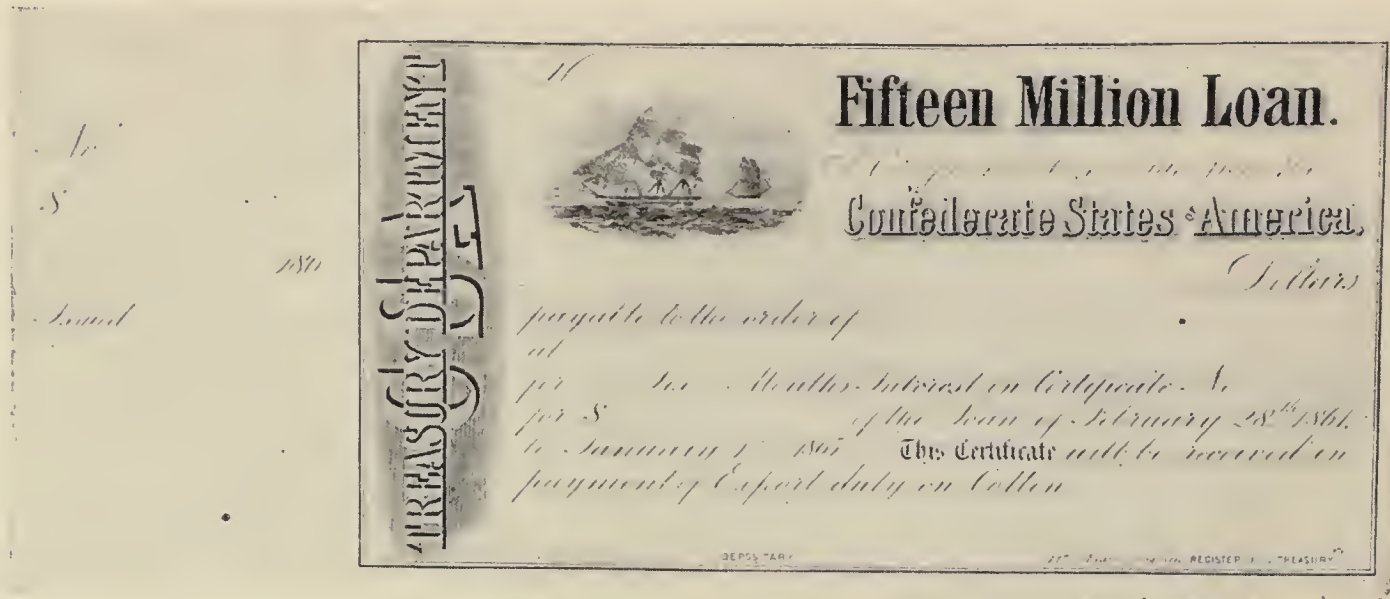 No
$
186
Issued
TREASURY DEPARTMENT
C S A
No
Fifteen Million Loan.
Confederate States of America,
Dollars
payable to the order of
at
for Months Interest on Certificate No
for $ of the Loan of February 28th 1861.
to January 1 186 This Certificate will be received in
payment of Export duty on Cotton
DEPOSITARY
REGISTER TREASURY